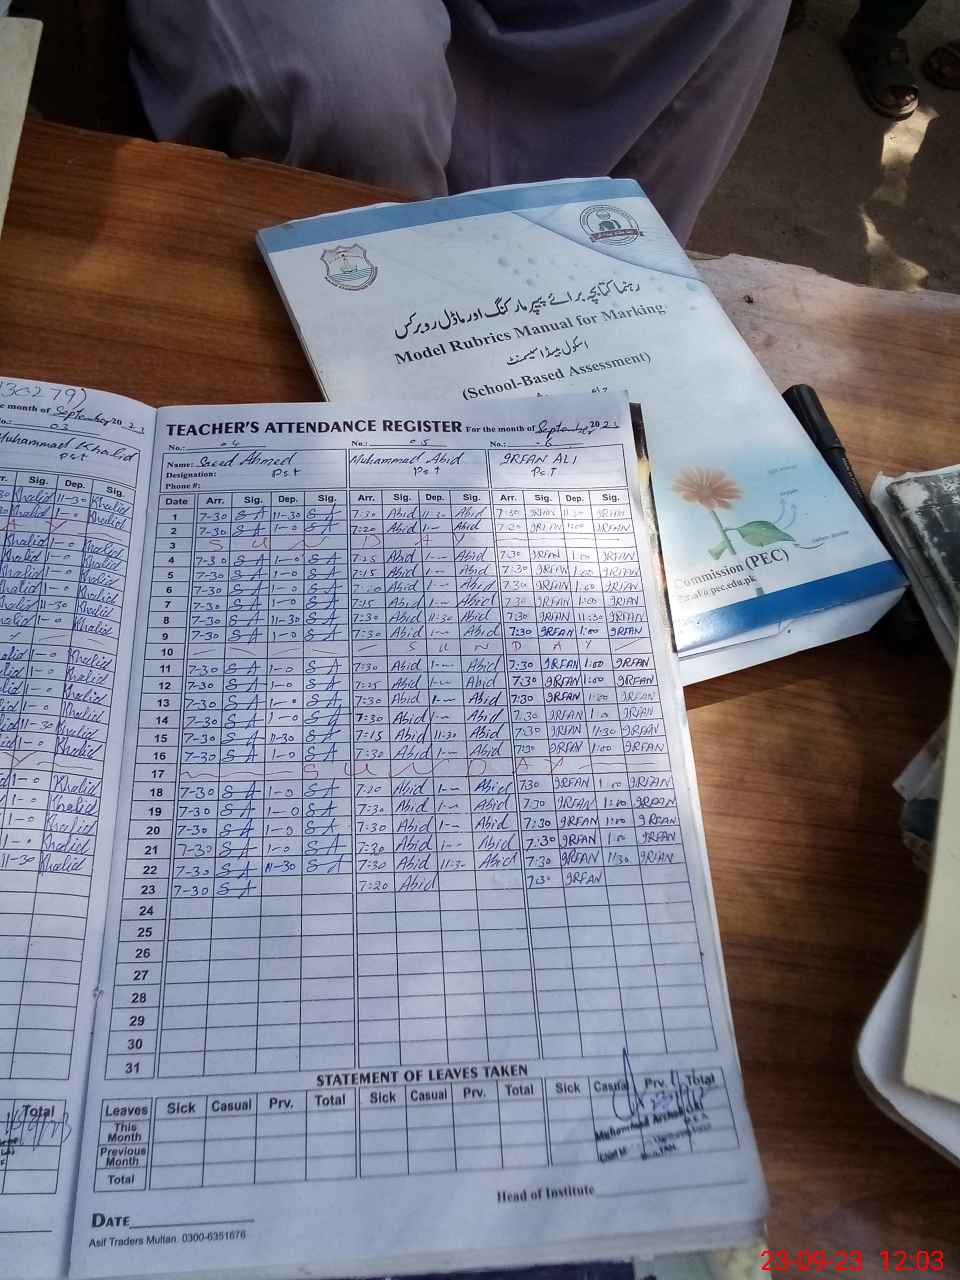 رہنما کتابچہ برائے پیپر مارکنگ اور ماڈل روبرکس
Model Rubrics Manual for Marking
اسکول بیسڈ اسیسمنٹ
(School-Based Assessment)
Commission (PEC)
pec.edu.pk
30279)
e month of September 20 23
03
Muhammad Khalid
Pst
TEACHER'S ATTENDANCE REGISTER For the month of September 2023
No.: 04 No.: 05 No.: 06
Name: Saeed Ahmed Muhammad Abid IRFAN ALI
Designation: Pst Pst Pst
Phone #:
Date Arr. Sig. Dep. Sig. Arr. Sig. Dep. Sig. Arr. Sig. Dep. Sig.
1 7-30 SA 11-30 SA 7:30 Abid 11:30 Abid 7:30 IRFAN 11:30 IRFAN
2 7-30 SA 1-0 SA 7:20 Abid 1-- Abid 7:20 IRFAN 1:00 IRFAN
3 SUNDAY
4 7-30 SA 1-0 SA 7:25 Abid 1-- Abid 7:30 IRFAN 1:00 IRFAN
5 7-30 SA 1-0 SA 7:15 Abid 1-- Abid 7:30 IRFAN 1:00 IRFAN
6 7-30 SA 1-0 SA 7:20 Abid 1-- Abid 7:30 IRFAN 1:00 IRFAN
7 7-30 SA 1-0 SA 7:15 Abid 1-- Abid 7:30 IRFAN 1:00 IRFAN
8 7-30 SA 11-30 SA 7:30 Abid 11:30 Abid 7:30 IRFAN 11:30 IRFAN
9 7-30 SA 1-0 SA 7:30 Abid 1-- Abid 7:30 IRFAN 1:00 IRFAN
10 SUNDAY
11 7-30 SA 1-0 SA 7:30 Abid 1-- Abid 7:30 IRFAN 1:00 IRFAN
12 7-30 SA 1-0 SA 7:25 Abid 1-- Abid 7:30 IRFAN 1:00 IRFAN
13 7-30 SA 1-0 SA 7:30 Abid 1-- Abid 7:30 IRFAN 1:00 IRFAN
14 7-30 SA 1-0 SA 7:30 Abid 1-- Abid 7:30 IRFAN 1:00 IRFAN
15 7-30 SA 11-30 SA 7:15 Abid 11:30 Abid 7:30 IRFAN 11:30 IRFAN
16 7-30 SA 1-0 SA 7:30 Abid 1-- Abid 7:30 IRFAN 1:00 IRFAN
17 SUNDAY
18 7-30 SA 1-0 SA 7:20 Abid 1-- Abid 7:30 IRFAN 1:00 IRFAN
19 7-30 SA 1-0 SA 7:30 Abid 1-- Abid 7:30 IRFAN 1:00 IRFAN
20 7-30 SA 1-0 SA 7:30 Abid 1-- Abid 7:30 IRFAN 1:00 IRFAN
21 7-30 SA 1-0 SA 7:30 Abid 1-- Abid 7:30 IRFAN 1:00 IRFAN
22 7-30 SA 11-30 SA 7:30 Abid 11:30 Abid 7:30 IRFAN 11:30 IRFAN
23 7-30 SA 7:20 Abid 7:30 IRFAN
24
25
26
27
28
29
30
31
STATEMENT OF LEAVES TAKEN
Leaves Sick Casual Prv. Total Sick Casual Prv. Total Sick Casual Prv. Total
This Month
Previous Month
Total
Muhammad
Head of Institute
DATE
Asif Traders Multan. 0300-6351676
23-09-23 12:03